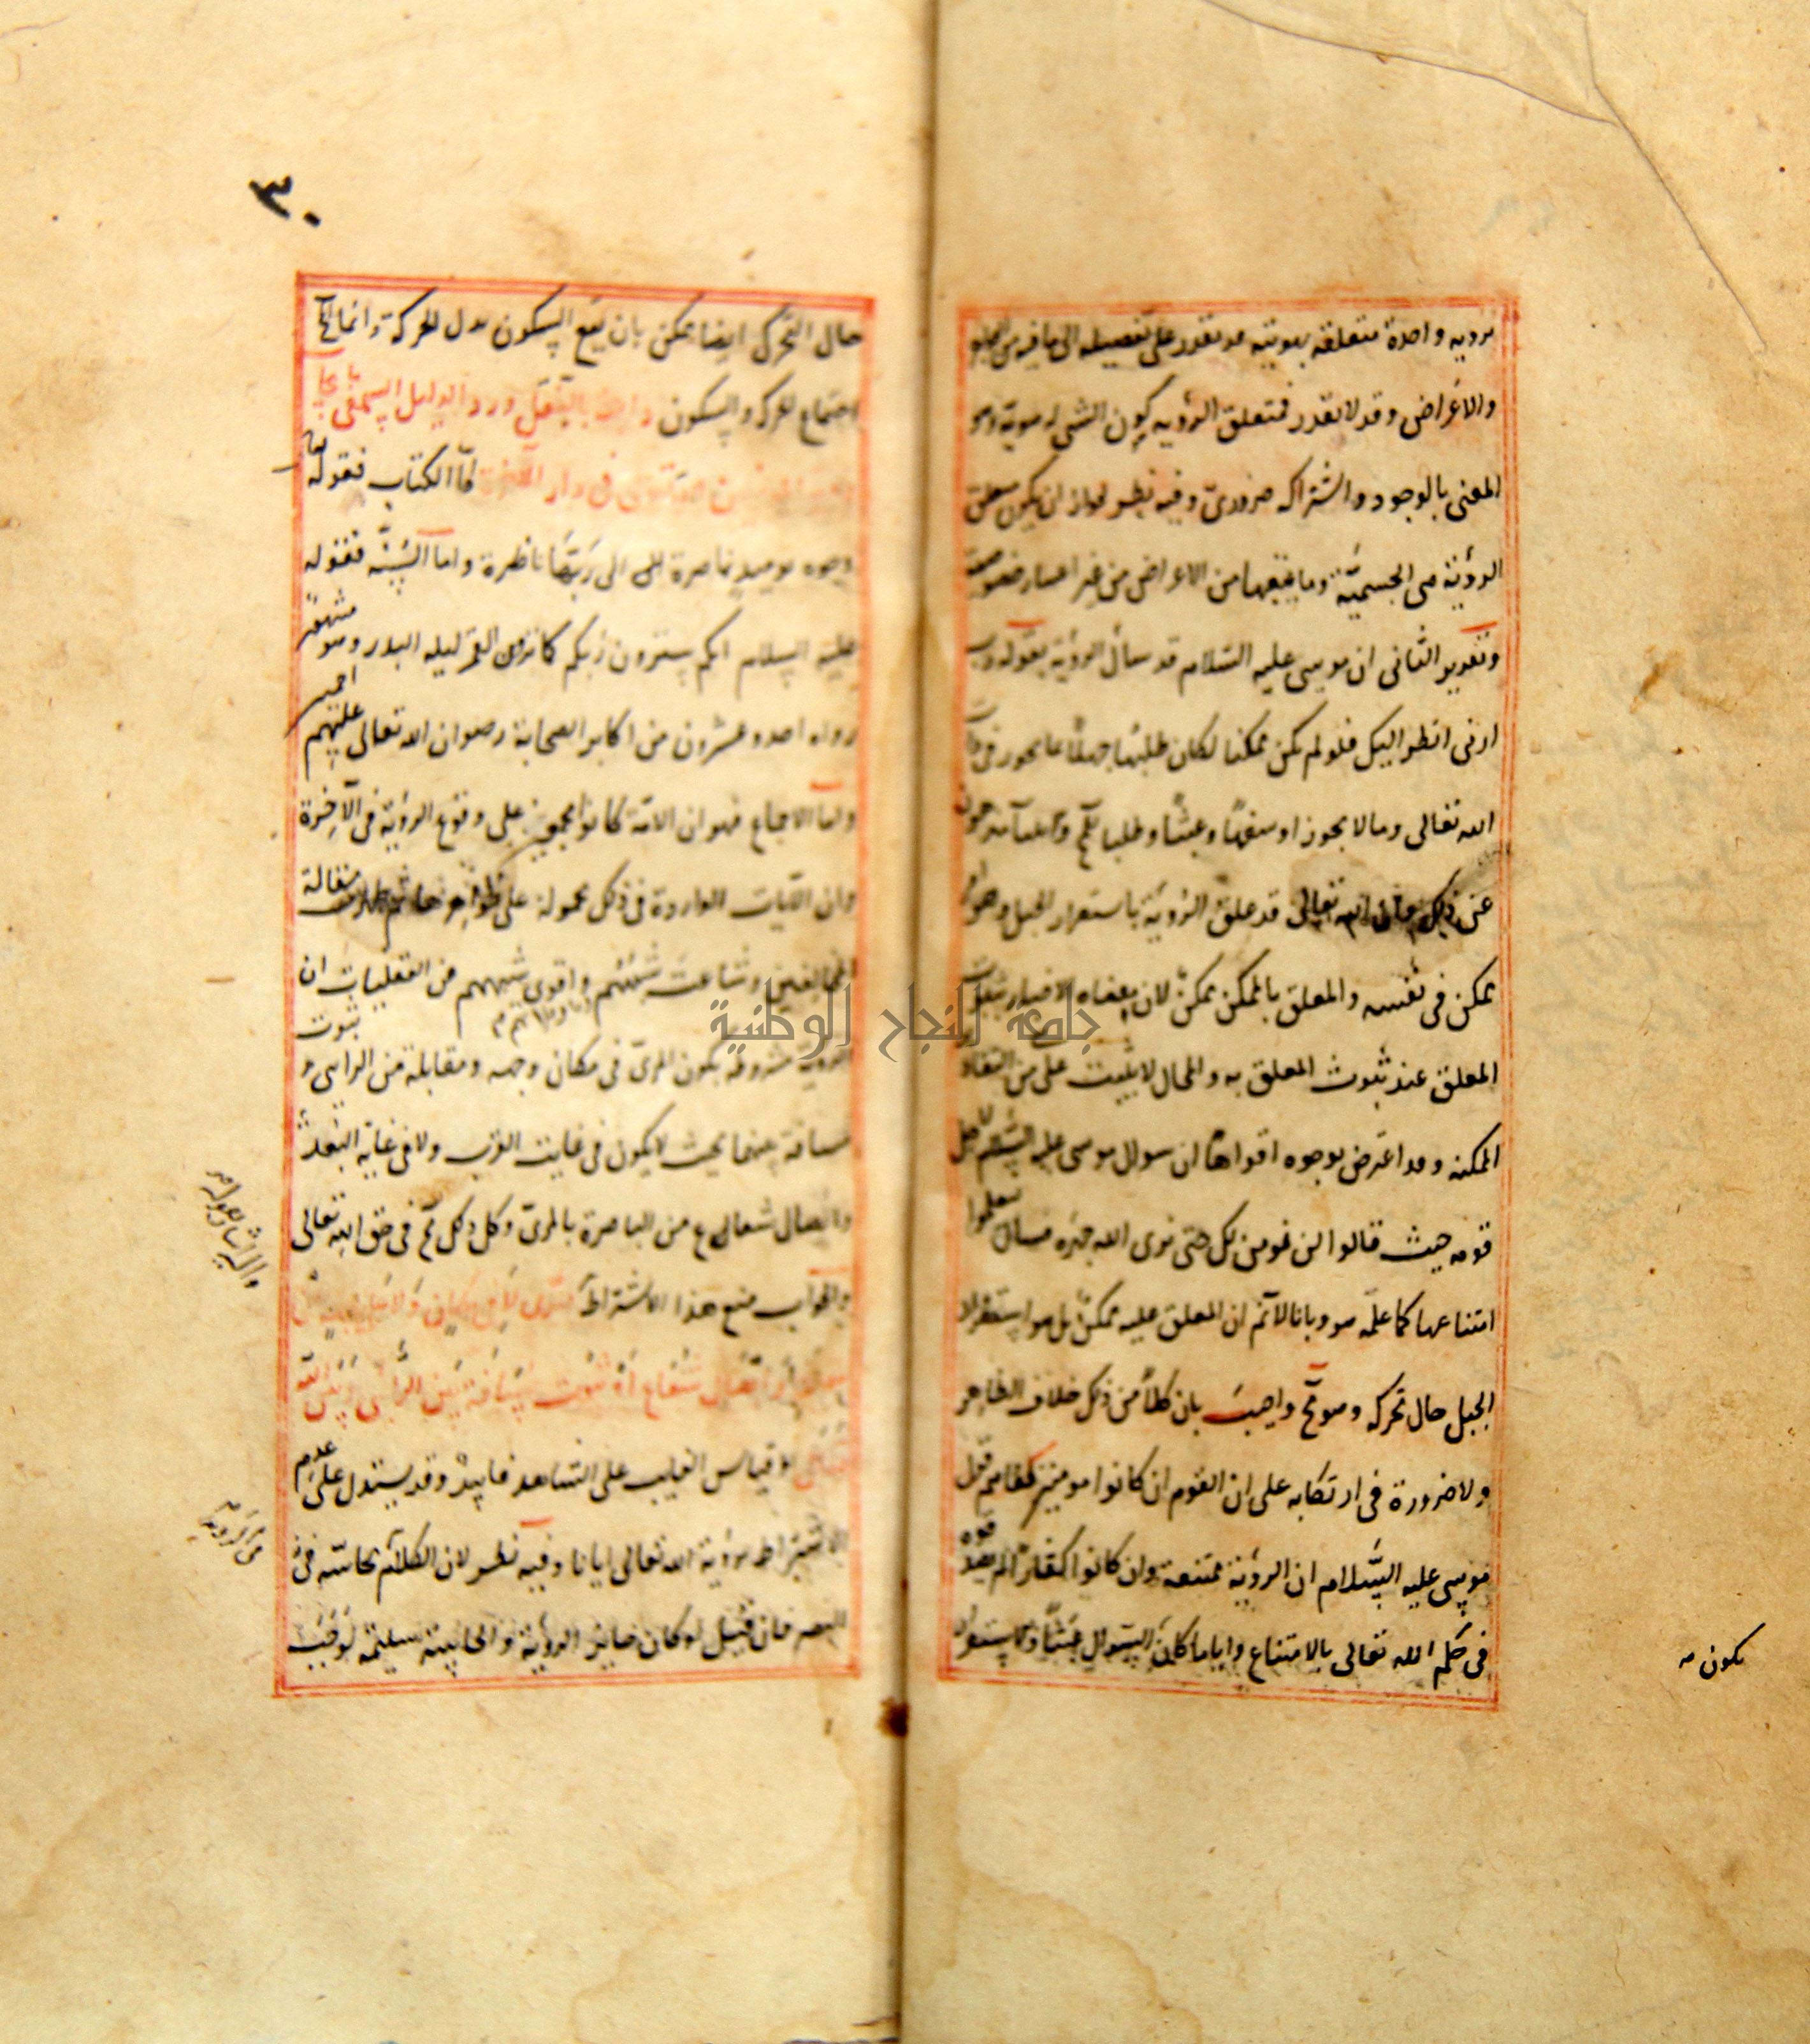 برويه واحدة متعلقة بهويته قد نقدر على تفصيله الى ما فيه من الجواهر
والاعراض وقد لا نقدر فمتعلق الرؤية كون الشى له هوية وهو
المعنى بالوجود واشتراكه ضرورى وفيه نظر لجواز ان يكون متعلق
الرؤية هى الجسمية وما يتبعها من الاعراض من غير اعتبار خصوصية
وتقرير الثانى ان موسى عليه السلام قد سأل الرؤية بقوله رب
ارنى انظر اليك فلو لم يكن ممكنا لكان طلبها جهلا بما يجوز فى ذات
الله تعالى وما لا يجوز او سفها وعبثا وطلبا للمح والانبيآ منزهون
عن ذلك وان الله تعالى قد علق الرؤية باستقرار الجبل وهو امر
ممكن فى نفسه والمعلق بالممكن ممكن لان معناه الاخبار بثبوت
المعلق عند ثبوت المعلق به والمحال لا يثبت على من التقادير
الممكنه وقد اعترض بوجوه اقواها ان سوال موسى عليه السلام لاجل
قومه حيث قالوا لن نومن لك حتى نرى الله جهره فسال ليعلموا
امتناعها كما علمه هو وبانا لا نم ان المعلق عليه ممكن بل هو استقرار
الجبل حال تحركه وهو مح واجيب بان كلا من ذلك خلاف الظاهر
ولا ضرورة فى ارتكابه على ان القوم ان كانوا مومنين كفاهم قول
موسى عليه السلام ان الرؤية ممتنعة وان كانوا كفارا لم يصدقوه
فى حكم الله تعالى بالامتناع واياما كان السوال عبثا والاستقرار
يكون مه
٣٠
حال التحرك ايضا ممكن بان يقع السكون بدل الحركة وانما المح
اجتماع الحركة والسكون واجبة بالنقل ورد الدليل السمعى بايجاب
رؤية المومنين الله تعالى فى دار الآخرة اما الكتاب فقوله تعالى
وجوه يوميذ ناضرة الى الى ربها ناظرة واما السنة فقوله
عليه السلام انكم سترون ربكم كما ترون القمر ليله البدر وهو مشهور
رواه احد وعشرون من اكابر الصحابة رضوان الله تعالى عليهم اجمعين
واما الاجماع فهو ان الامة كانوا مجمعين على وقوع الرؤية فى الآخرة
وان الآيات الواردة فى ذلك محمولة على ظواهرها ثم ظهرت مقالة
المخالفين وشاعت شبههم واقوى شبههم من العقليات ان
الروية مشروطه بكون المرئ فى مكان وجهه ومقابلة من الرايى وثبوت
مسافة بينهما بحيث لا يكون فى غايت القرب ولا فى غاية البعد
واتصال شعاع من الباصرة بالمرئ وكل ذلك مح فى حق الله تعالى
والجواب منع هذا الاشتراط فيرى لا فى مكان ولا على جهة من
مقابلة او اتصال شعاع او ثبوت مسافة بين الرائى وبين الله
تعالى وقياس الغايب على الشاهد فاسد وقد يستدل على عدم
الاشتراط برؤية الله تعالى ايانا وفيه نظر لان الكلام بحاسة
البصر فان قيل لو كان جايز الرؤية والحاسة سليمة لوجب